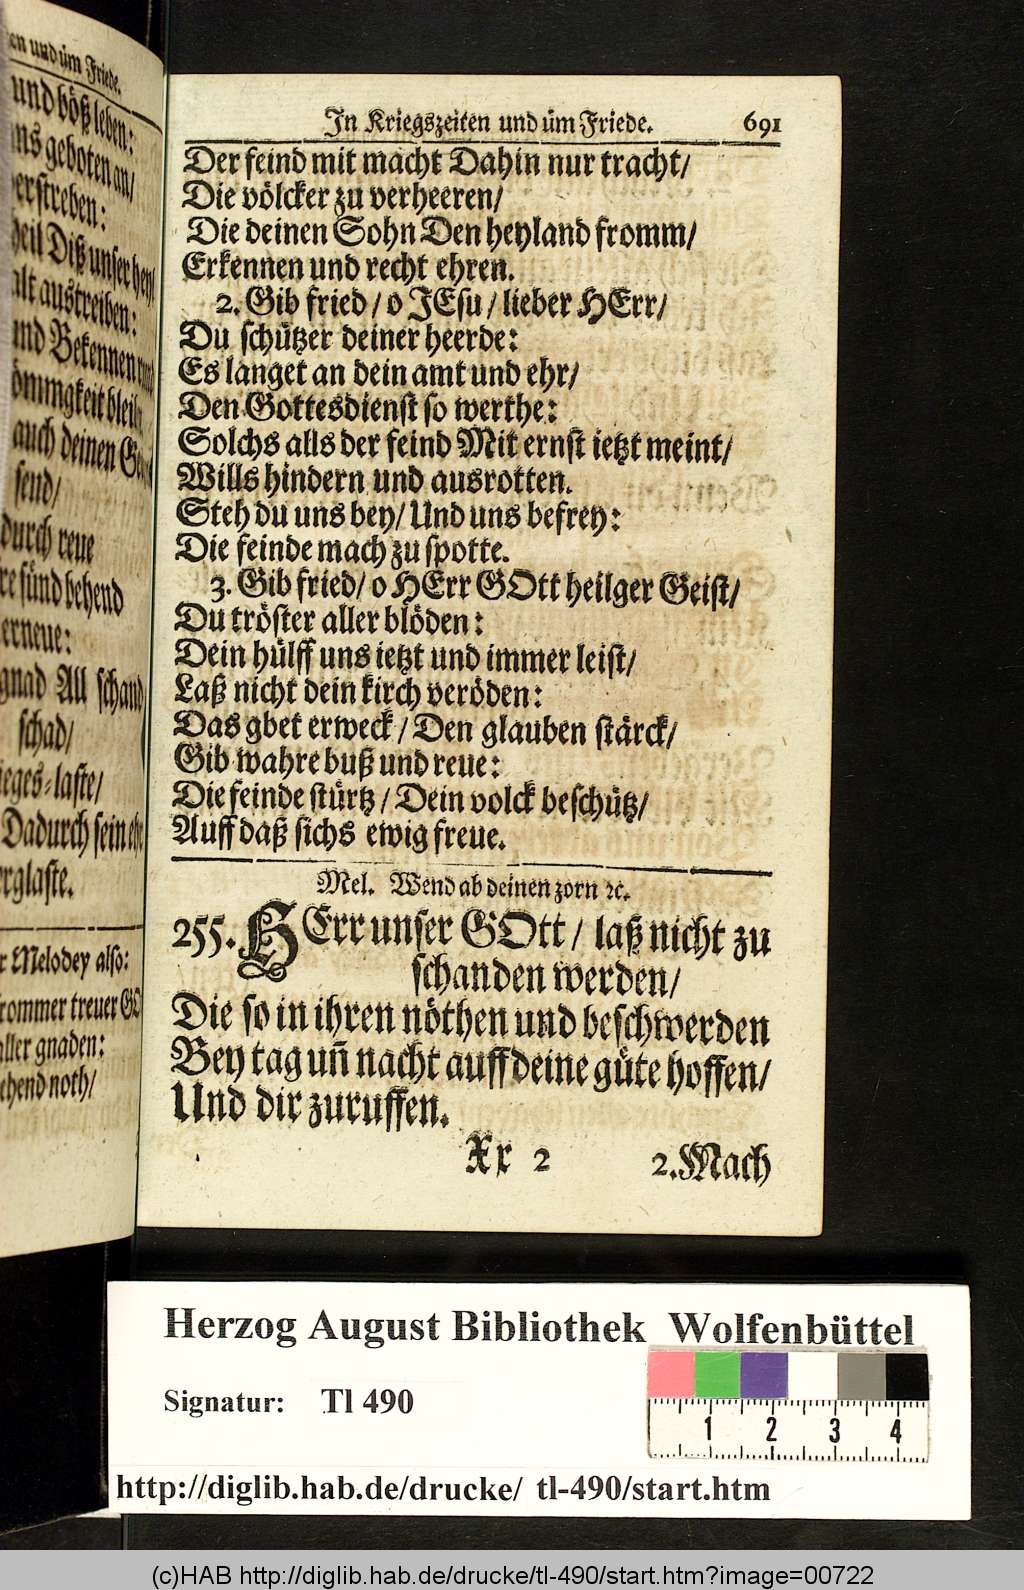 en und üm Friede.
und böß leben:
ns geboten an/
erstreben:
heil Diß unser hey
alt austreiben:
und Bekennen
ömmgkeit bleib
auch deinen
send/
durch reue
re sünd behend
erneue:
gnad All schand
schad/
ieges-laste/
Dadurch sein ehr
erglaste.
r Melodey also:
frommer treuer GO
aller gnaden:
ehend noth/
In Kriegszeiten und üm Friede. 691
Der feind mit macht Dahin nur tracht/
Die völcker zu verheeren/
Die deinen Sohn Den heyland fromm/
Erkennen und recht ehren.
2. Gib fried / o JEsu / lieber HErr/
Du schützer deiner heerde:
Es langet an dein amt und ehr/
Den Gottesdienst so werthe:
Solchs alls der feind Mit ernst ietzt meint/
Wills hindern und ausrotten.
Steh du uns bey/ Und uns befrey:
Die feinde mach zu spotte.
3. Gib fried/ o HErr GOtt heilger Geist/
Du tröster aller blöden:
Dein hülff uns ietzt und immer leist/
Laß nicht dein kirch veröden:
Das gbet erweck / Den glauben stärck/
Gib wahre buß und reue:
Die feinde stürtz / Dein volck beschütz/
Auff daß sichs ewig freue.
Mel. Wend ab deinen zorn ꝛc.
255. HErr unser GOtt / laß nicht zu
schanden werden/
Die so in ihren nöthen und beschwerden
Bey tag uñ nacht auff deine güte hoffen/
Und dir zuruffen.
Xx 2 2. Mach
Herzog August Bibliothek Wolfenbüttel
Signatur: Tl 490
1 2 3 4
http://diglib.hab.de/drucke/ tl-490/start.htm
(c)HAB http://diglib.hab.de/drucke/tl-490/start.htm?image=00722